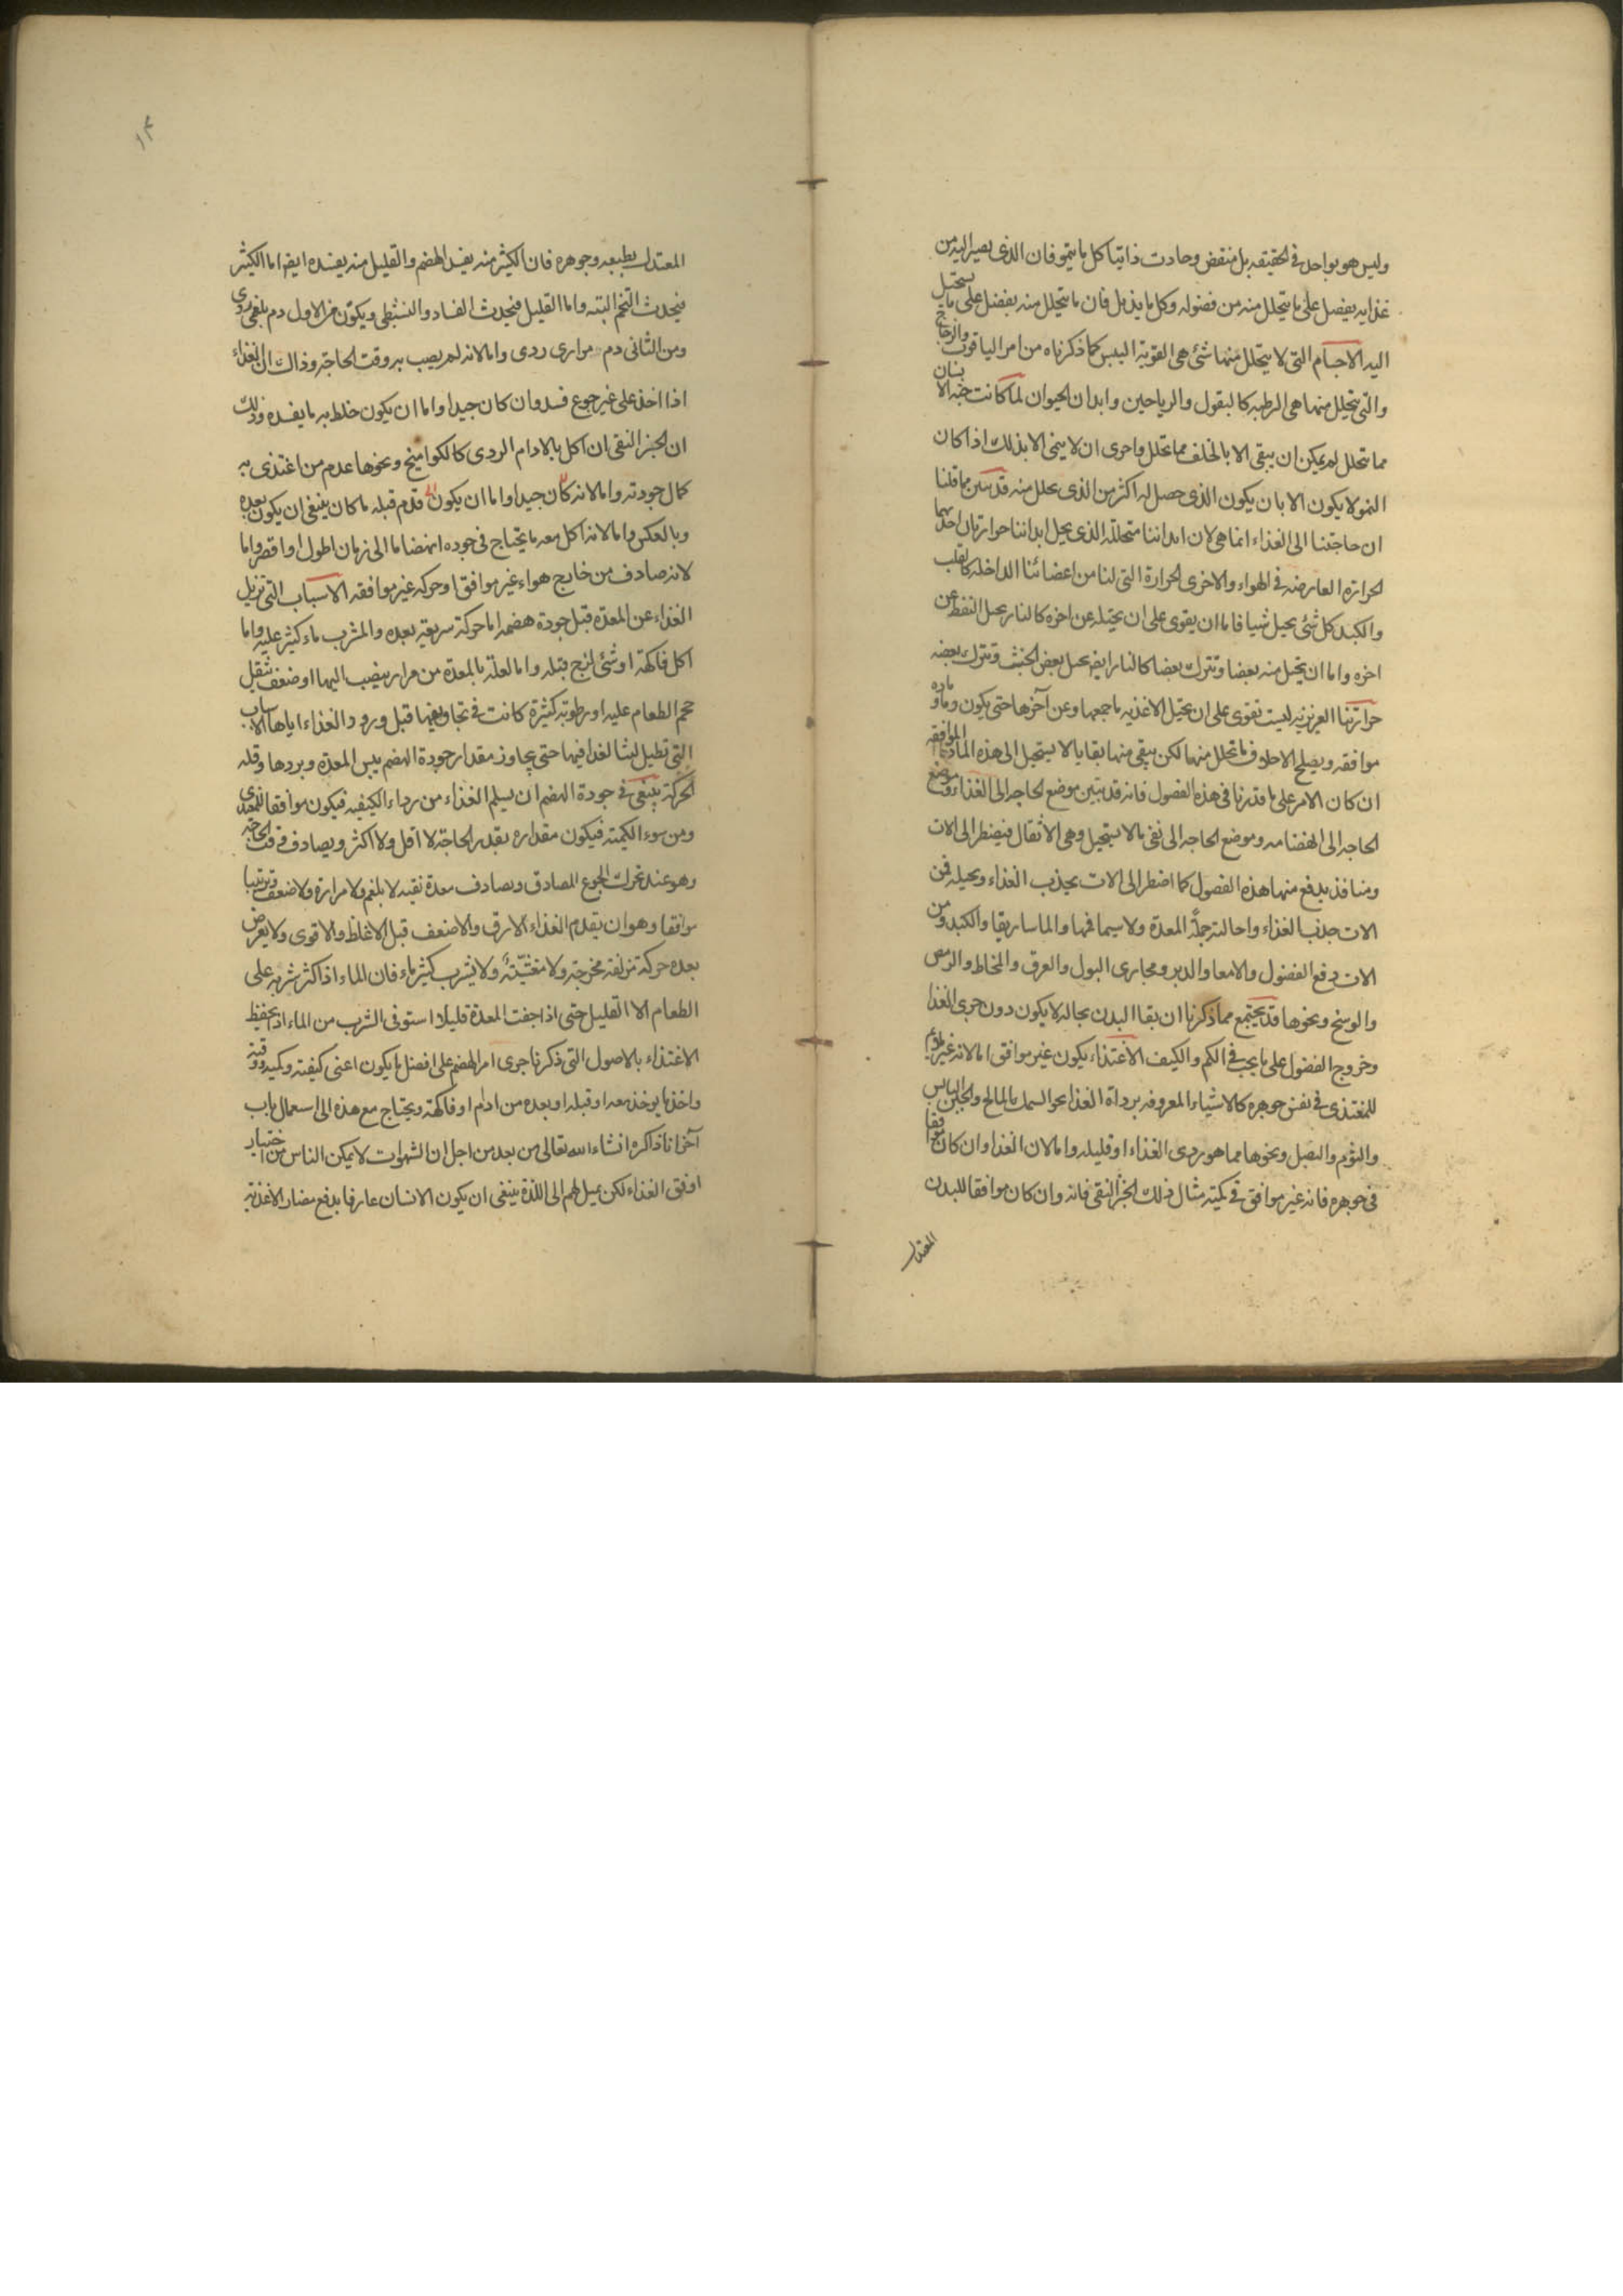 وليس هو بواحد في الحقيقه بل منقض وحادث دائما كل ما ينمو فان الذي يصير اليه من
غذايه يفضل على ما يتحلل منه من فضوله وكل ما يذبل فان ما يتحلل منه يفضل على ما يستحيل
اليه الاجسام التي لا يتحلل منها شئ هي القويه اليبس كما ذكرناه من امر الياقوت والزجاج
والتي يتحلل منها هي الرطبه كالبقول والرياحين وابدان الحيوان لما كانت جثه الانسان
مما تتحلل لم يمكن ان يبقى الا بالخلف مما تحلل واحرى ان لا ينمي الا بذلك اذا كان
النمو لا يكون الا بان يكون الذي حصل له اكثر من الذي تحلل منه قد تبين مما قلنا
ان حاجتنا الى الغذاء انما هي لان ابداننا متحللة الذي يحل ابداننا حرارتان احديهما
الحرارة العارضه في الهواء والاخرى الحرارة التي لنا من اعضائنا الداخله كالقلب
والكبد كل شئ يحيل شيا فاما ان يقوى على ان يحيله عن اخره كالنار يحيل النفط عن
اخره واما ان يحيل منه بعضا وتترك بعضا كالنار ايضا تحيل بعض الخشب وتترك بعضه
حرارتنا الغريزيه ليست تقوى على ان تحيل الاغذيه باجمعها وعن آخرها حتى يكون دما وماده
موافقه ويصلح لاخلاف ما تحلل منها لكن يبقى منها بقايا لا يستحيل الى هذه المادة الموافقه
ان كان الامر على ما قدرنا في هذه الفصول فانه قد تبين موضع الحاجه الى الغذاء وموضع
الحاجه الى انهضامه وموضع الحاجه الى نفي ما لا يستحيل وهي الاثقال فيضطر الى الات
ومنافذ يدفع منها هذه الفصول كما اضطر الى الات يجذب الغذاء ويحيله فمن
الات جذب الغذاء واحالته جملة المعدة ولاسيما فمها والماساريقا والكبد ومن
الات دفع الفضول والامعا والدبر ومجارى البول والعرق والمخاط والرمص
والوسخ ونحوها قد يجتمع مما ذكرنا ان بقا البدن بحاله لا يكون دون جرى الغذا
وخروج الفضول على ما يجب في الكم والكيف الاغتذاء يكون غير موافق اما لانه غير ملائم
للمغتذى في نفس جوهره كالاشياء المعروفه برداءة الغذا نحو السمك المالح والجبن اليابس
والثوم والبصل ونحوها مما هو ردى الغذاء او قليله واما لان الغذا وان كان موافقا
في جوهره فانه غير موافق في كميته مثال ذلك الخبز النقي فانه وان كان موافقا للبدن
المعتدل
١٣
المعتدل بطبعه وجوهره فان الكثير منه يفسد الهضم والقليل منه يفسده ايضا اما الكثير
فيحدث التخم البته واما القليل فيحدث الفساد والتشيطي ويكون من الاول دم بلغمى ردى
ومن الثانى دم مرارى ردى واما لانه لم يصب به وقت الحاجة وذاك ان الغذاء
اذا اخذ على غير جوع فسد وان كان جيدا واما ان يكون خلط به ما يفسده وذلك
ان الخبز النقى ان اكل بالادام الردى كالكواميخ ونحوها عدم من اغتذى به
كمال جودته واما لانه كان جيدا واما ان يكون قدم قبله ما كان ينبغى ان يكون بعده
وبالعكس واما لانه اكل معه ما يحتاج فى جوده انهضاما الى زمان اطول او اقصر واما
لانه صادف من خارج هواء غير موافق او حركه غير موافقه الاسباب التى تزيل
الغذاء عن المعدة قبل جودة هضمه اما حركة سريعة بعده والمشرب ماء كثير عليه واما
اكل فاكهة او شئ لزج قبله واما لعلة بالمعدة من مرار ينصب اليها او ضعف بثقل
حجم الطعام عليه او رطوبة كثيرة كانت فى تجاويفها قبل ورود الغذاء اياها الاسباب
التى تطيل لبث الغذا فيها حتى يجاوز مقدار جودة الهضم يبس المعدة وبردها وقله
الحركة ينبغى فى جودة الهضم ان يسلم الغذاء من رداء الكيفيه فيكون موافقا للمغتذى
ومن سوء الكميته فيكون مقداره بقدر الحاجة لا اقل ولا اكثر ويصادف وقت الحاجة
وهو عند تحرك الجوع الصادق ويصادف معدة نقيه لا بلغم ولا مرارة ولا ضعف وترتيبا
موافقا وهو ان يقدم الغذاء الارق والاضعف قبل الاغلظ والاقوى ولا يعرض
بعده حركة مزلقة مخرجة ولا مغثيّة ولا يشرب كثير ماء فان الماء اذا كثر شربه على
الطعام الا القليل حتى اذا جفت المعدة قليلا استوفى الشرب من الماء اذا يحفظ
الاغتذاء بالاصول التى ذكرنا جرى امر الهضم على افضل ما يكون اعنى كيفيته وكميته ووقته
واخذ ما يوخذ معه او قبله او بعده من ادام او فاكهة ويحتاج مع هذه الى استعمال باب
آخر انا ذاكره انشاء الله تعالى من بعد من اجل ان الشهوات لا يمكن الناس من اختيار
اوفق الغذاء لكن يميل لهم الى اللذة ينبغى ان يكون الانسان عارفا بدفع مضار الاغذيه